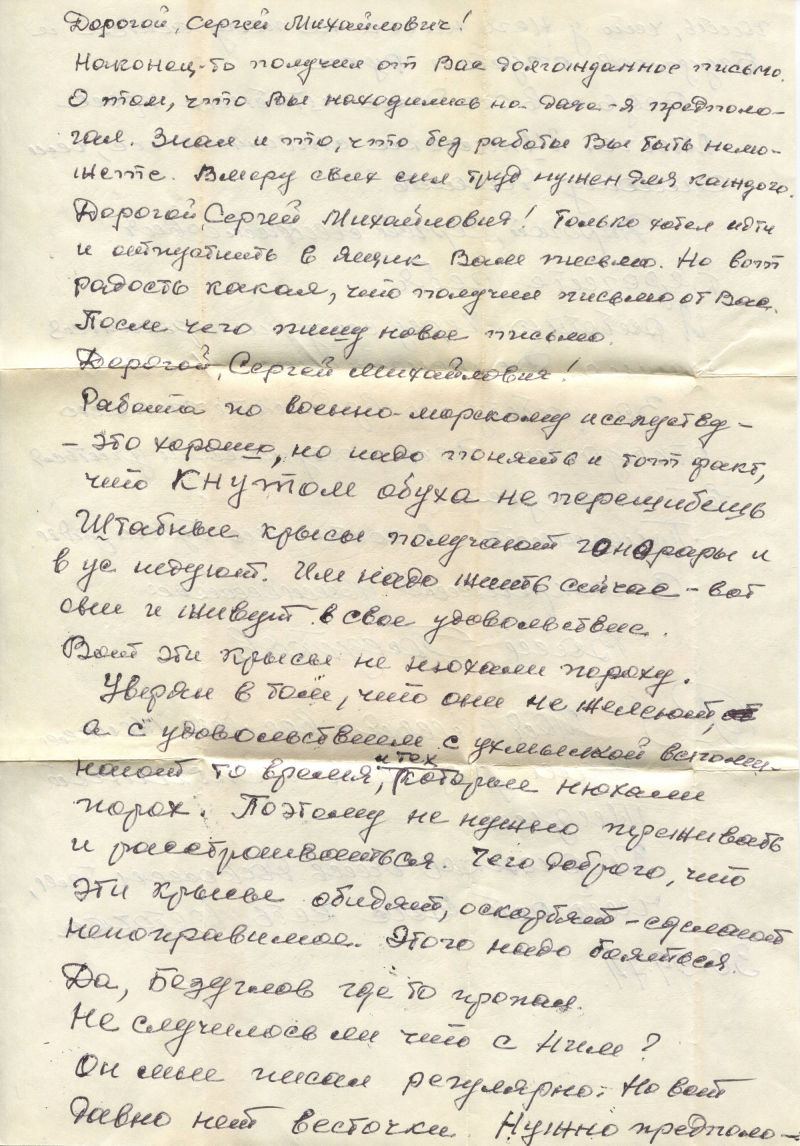 Дорогой, Сергей Михайлович!
Наконец-то получил от Вас долгожданное письмо.
О том, что Вы находились на даче - я предпола-
гал. Знал и то, что без работы Вы быть немо-
жете. Вмеру своих сил труд нужен для каждого.
Дорогой, Сергей Михайлович! Только хотел идти
и отпустить в ящик Вам письмо. Но вот
радость какая, что получил письмо от Вас.
После чего пишу новое письмо.
Дорогой, Сергей Михайлович!
Работа по военно-морскому исскуству -
- это хорошо, но надо понять и тот факт,
что Кнутом обуха не перешибешь
Штабные крысы получают гонорары и
в ус недуют. Им надо жить сейчас - вот
они и живут в свое удовольствие.
Вот эти крысы не нюхали пороху.
Уверян в том, что они не желеют,
а с удовольствием с ухмылкой вспоми-
нают то время, и тех которые нюхали
порох. Поэтому не нужно преживать
и расстраиваться. Чего доброго, что
эти крысы обидят, оскорбят - сделают
непоправимое. Этого надо бояться.
Да, Безуглов где то пропал.
Не случилось ли что с Ним?
Он мне писал регулярно. Но вот
давно нет весточки. Нужно предполо-